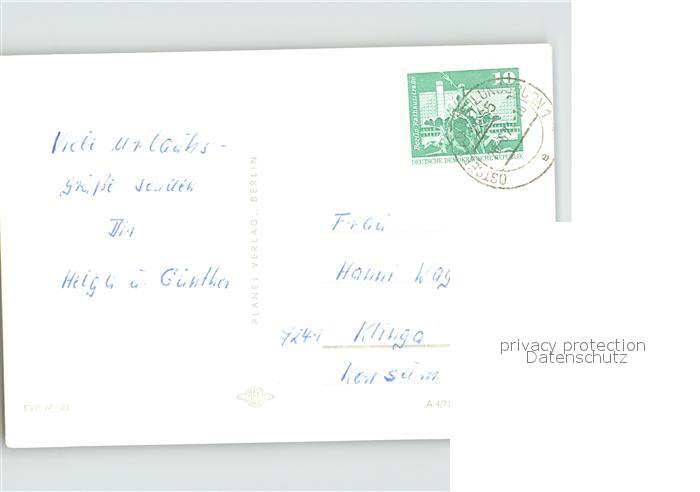 Viele Urlaubs-
grüße senden
Dir
Helga u. Günther
PLANET VERLAG, BERLIN
10
Berlin · Rathausstraße
DEUTSCHE DEMOKRATISCHE REPUBLIK
OSTSEE
a
Frau
Hanni Wag
7241 Klinga
Konsum
EVP M -,23
A 4/7
privacy protection
Datenschutz